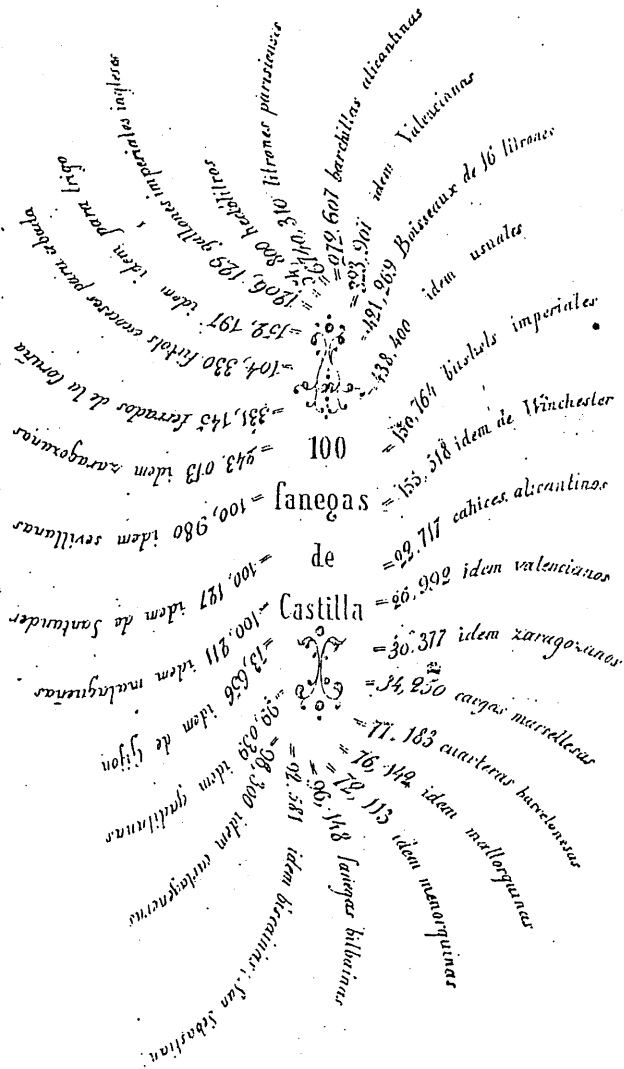 100
fanegas
de
Castilla
=3,072.607 barchillas alicantinas
=333,901 idem Valencianas
=421,269 Boisseaux de 16 litrones
=438.400 idem usuales
=150,764 bushels imperiales
=155.518 idem de Winchester
=22.717 cahices alicantinos
=26,992 idem valencianos
=30.377 idem zaragozanos
=34,250 cargas marsellesas
=77.183 cuarteras barcelonesas
=76,142 idem mallorquinas
=72,113 idem menorquinas
=96,148 fanegas bilbainas
=92.581 idem biscainas; San Sebastian
=98,300 idem cartageneras
=99,039 idem gaditanas
=73,656 idem de Gijon
=100,211 idem malagueñas
=100,127 idem de Santander
=100,980 idem sevillanas
=243.013 idem zaragozanas
=331,145 ferrados de la Coruña
=104,330 firlots escoceses para cebada
=152.197 idem idem para trigo
=1206,129 gallones imperiales ingleses
800 hectolitros
310 litrones parisienses